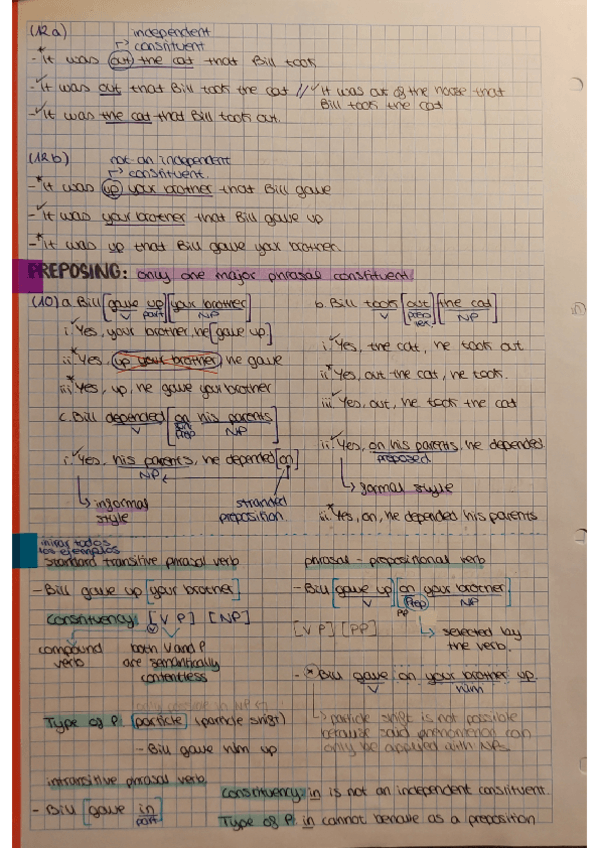 (12a) independent
↱ constituent
-*It was out the cat that Bill took
-✓It was out that Bill took the cat // ✓It was out of the house that
Bill took the cat
-✓It was the cat that Bill took out.
(12b) not an independent
↱ constituent.
-*It was up your brother that Bill gave
-✓It was your brother that Bill gave up
-*It was up that Bill gave your brother.
PREPOSING: only one major phrasal constituent
(10) a. Bill [gave up] [your brother]
V part NP
i. ✓Yes, your brother, he [gave up]
ii. *Yes, up your brother, he gave
iii. *Yes, up, he gave your brother
b. Bill took [out] [the cat]
V prep NP
i. ✓Yes, the cat, he took out
ii. *Yes, out the cat, he took.
iii. ✓Yes, out, he took the cat
c. Bill depended [on his parents]
V Prep NP
i. ✓Yes, his parents, he depended [on]
NP
↳ informal
style
stranded
preposition
ii. ✓Yes, on his parents, he depended
preposed
↳ formal style
iii. *Yes, on, he depended his parents
mirar todos
los ejemplos
standard transitive phrasal verb
- Bill gave up [your brother]
Constituency: [V P] [NP]
compound
verb
both V and P
are semantically
contentless
Type of P: particle (particle shift)
- Bill gave him up
phrasal-prepositional verb
- Bill [gave up] [on your brother]
V Prep NP
PP
[V P] [PP]
↳ selected by
the verb.
- *Bill gave on your brother up
V him
↳ particle shift is not possible
because said phenomenon can
only be applied with NPs
intransitive phrasal verb
- Bill [gave in]
part
Constituency: in is not an independent constituent.
Type of P: in cannot behave as a preposition